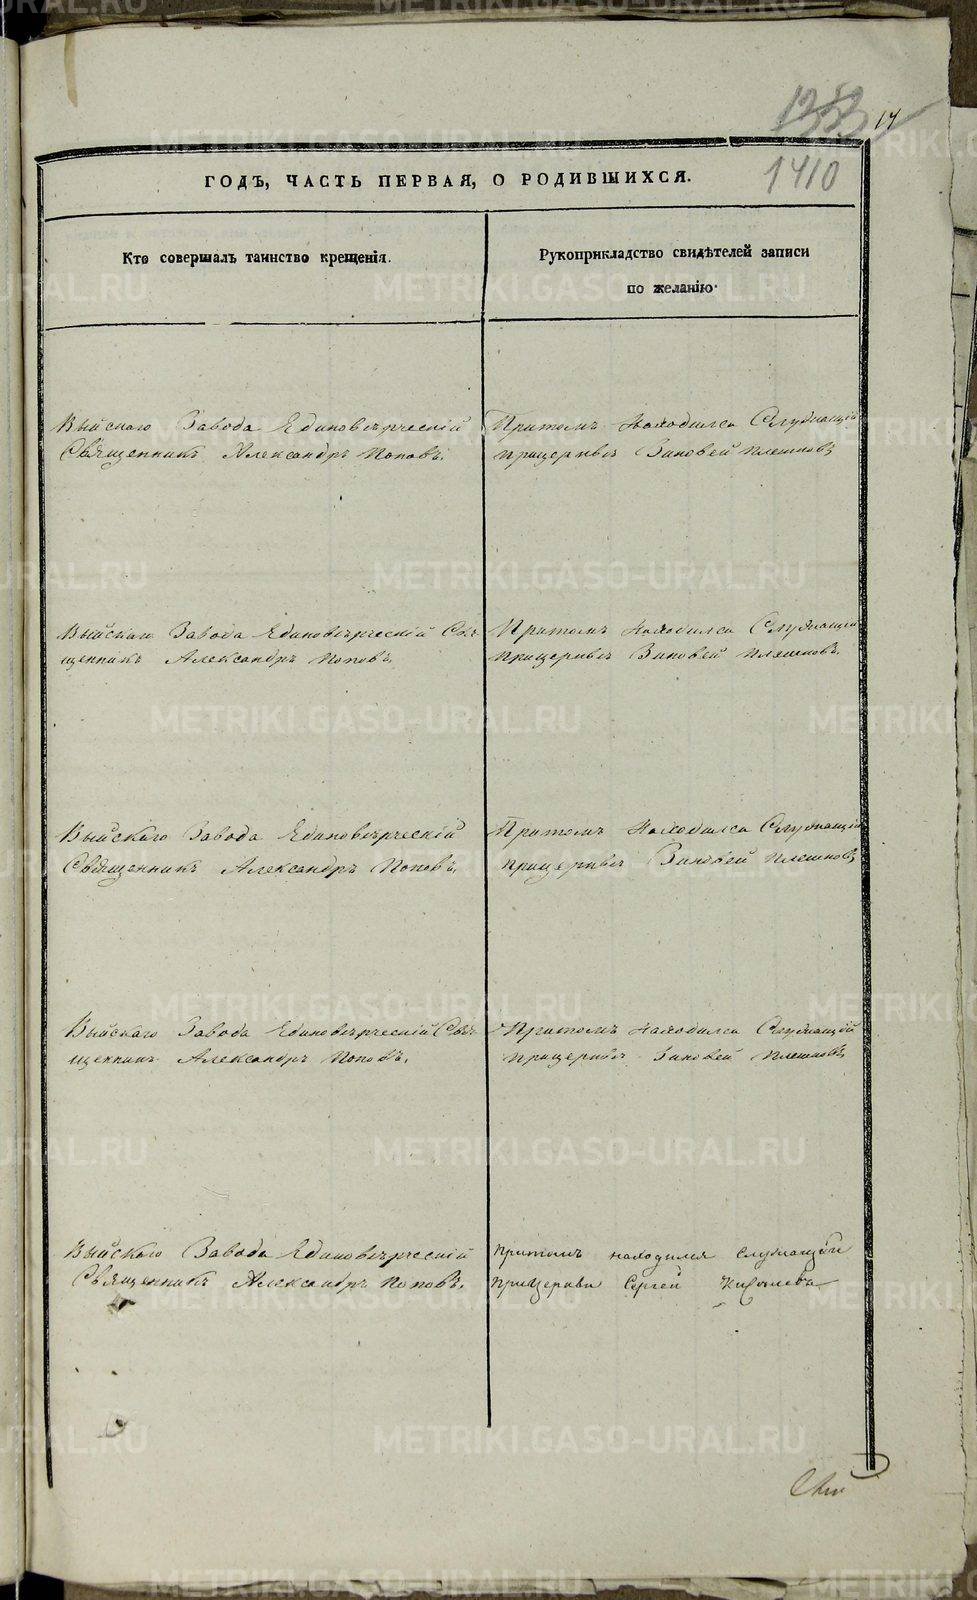 1353 14
1410
ГОДЪ, ЧАСТЬ ПЕРВАЯ, О РОДИВШИХСЯ.
Кто совершалъ таинство крещенія.
Рукоприкладство свидѣтелей записи
по желанію.
Выйскаго Завода Единовѣрческій
Священникъ Александръ Поповъ.
Притомъ Находился Служащій
прицерквѣ Зиновей Плешковъ
Выйскаго Завода Единовѣрческій Свя
щенникъ Александръ Поповъ.
Притомъ Находился Служащій
прицерквѣ Зиновей Плешковъ.
Выйскаго Завода Единовѣрческій
Священникъ Александръ Поповъ.
Притомъ Находился Служащій
прицерквѣ Зиновей Плешковъ
Выйскаго Завода Единовѣрческій Свя
щенникъ Александръ Поповъ.
Притомъ Находился Служащій
прицерквѣ Зиновей Плешковъ
Выйскаго Завода Единовѣрческій
Священникъ Александръ Поповъ.
притомъ находился служащей
прицеркви Сергей
METRIKI.GASO-URAL.RU